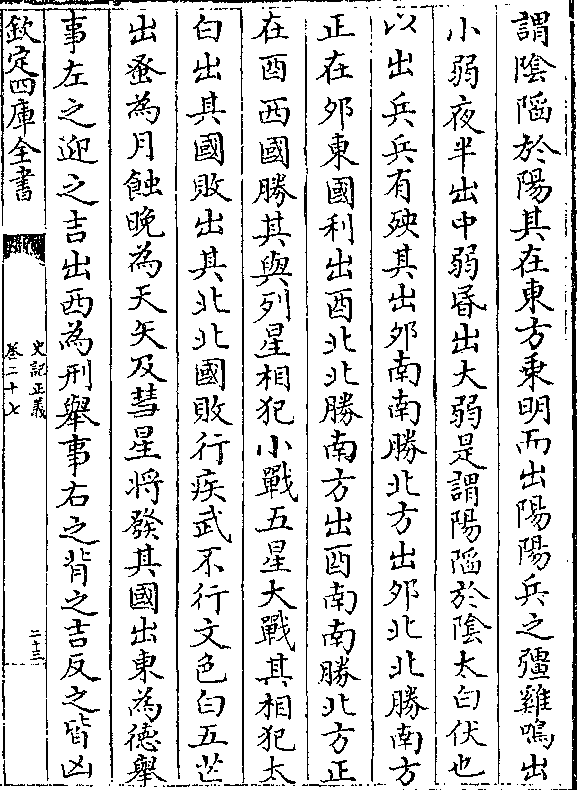 謂陰陷於陽其在東方乗明而出陽陽兵之彊雞鳴出
小弱夜半出中弱昬出大弱是謂陽陷於陰太白伏也
以出兵兵有殃其出夘南南勝北方出夘北北勝南方
正在夘東國利出酉北北勝南方出酉南南勝北方正
在酉西國勝其與列星相犯小戰五星大戰其相犯太
白出其國敗出其北北國敗行疾武不行文色白五芒
出蚤為月蝕晚為天矢及彗星将發其國出東為徳舉
事左之迎之吉出西為刑舉事右之背之吉反之皆凶
欽定四庫全書
史記正義
卷二十七
二十三